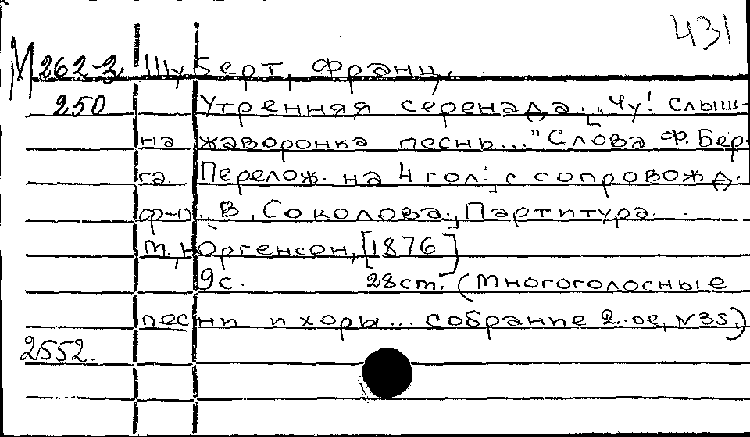 431
М 262-3 Шуберт, Франц.
250 Утренняя серенада. „Чу! Слыш-
на жаворонка песнь..." Слова Ф. Бер-
га. Перелож. на 4 гол. с сопровожд.
ф-п. В. Соколова. Партитура.
М., Юргенсон, [1876]
9 с. 28 ст. (Многоголосные
песни и хоры... собрание 2-ое, №35.)
2552.